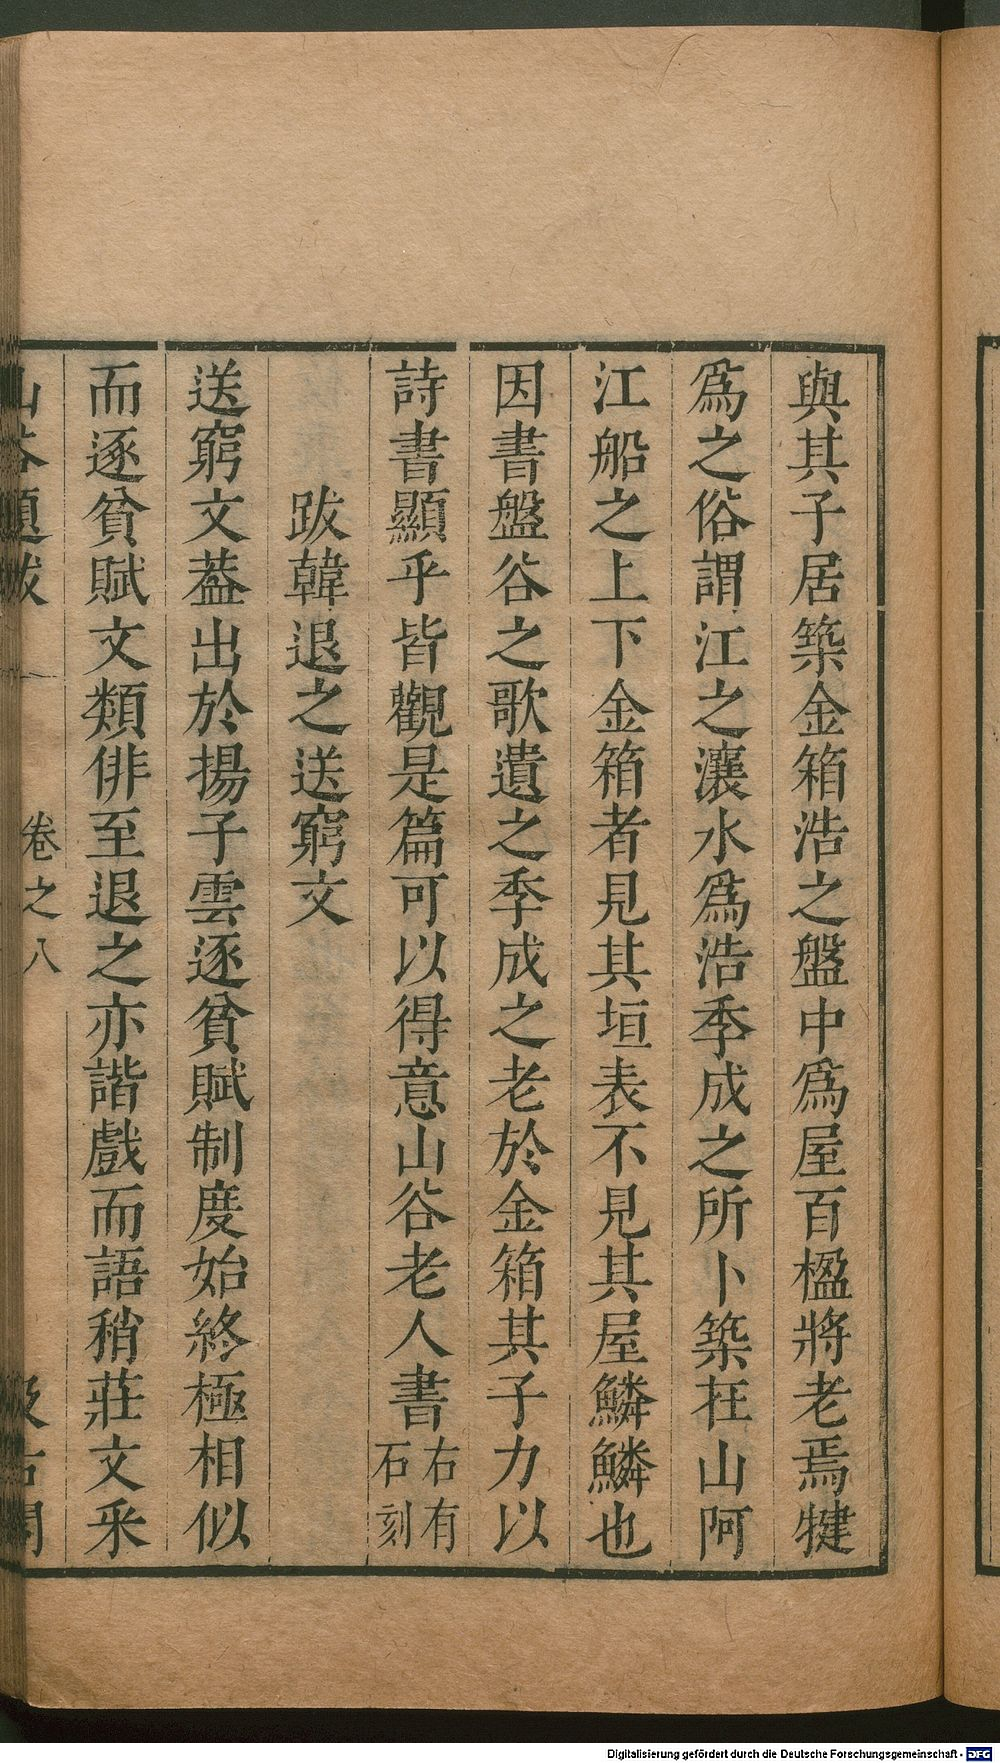 與其子居築金箱浩之盤中爲屋百楹將老焉犍
爲之俗謂江之瀼水爲浩季成之所卜築在山阿
江船之上下金箱者見其垣表不見其屋鱗鱗也
因書盤谷之歌遺之季成之老於金箱其子力以
詩書顯乎皆觀是篇可以得意山谷老人書右有石刻
跋韓退之送窮文
送窮文葢出於揚子雲逐貧賦制度始終極相似
而逐貧賦文類俳至退之亦諧戲而語稍莊文采
山谷題跋 卷之八 汲古閣
Digitalisierung gefördert durch die Deutsche Forschungsgemeinschaft - DFG